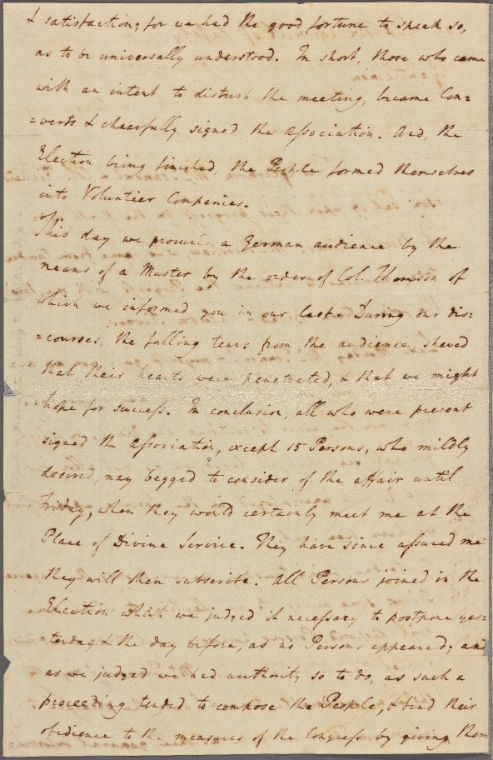 & satisfaction; for we had the good fortune to speak so,
as to be universally understood. In short, those who came
with an intent to disturb the meeting, became Con=
=verts & cheerfully signed the Association. And, the
Election being finished, the People formed themselves
into Volunteer Companies.
This day we procured a German audience by the
means of a Muster by the order of Col. Thomson of
which we informed you in our last. During our dis=
=courses, the falling tears from the audience, shewed
that their hearts were penetrated, & that we might
hope for success. In conclusion, all who were present
signed the Association, except 15 Persons, who mildly
desired, nay begged to consider of the affair until
Friday, when they would certainly meet me at the
Place of Divine Service. They have since assured me
they will then subscribe. All Persons joined in the
Election which we judged it necessary to postpone yes=
=terday & the day before, as no Persons appeared; and
as we judged we had authority so to do, as such a
proceeding tended to compose the People, & find their
obedience to the measures of the Congress by giving them